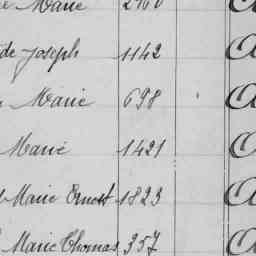 Marie 2160
de Joseph 1142
Marie 698
Marie 1421
Marie Ernest 1823
Marie Thomas 357